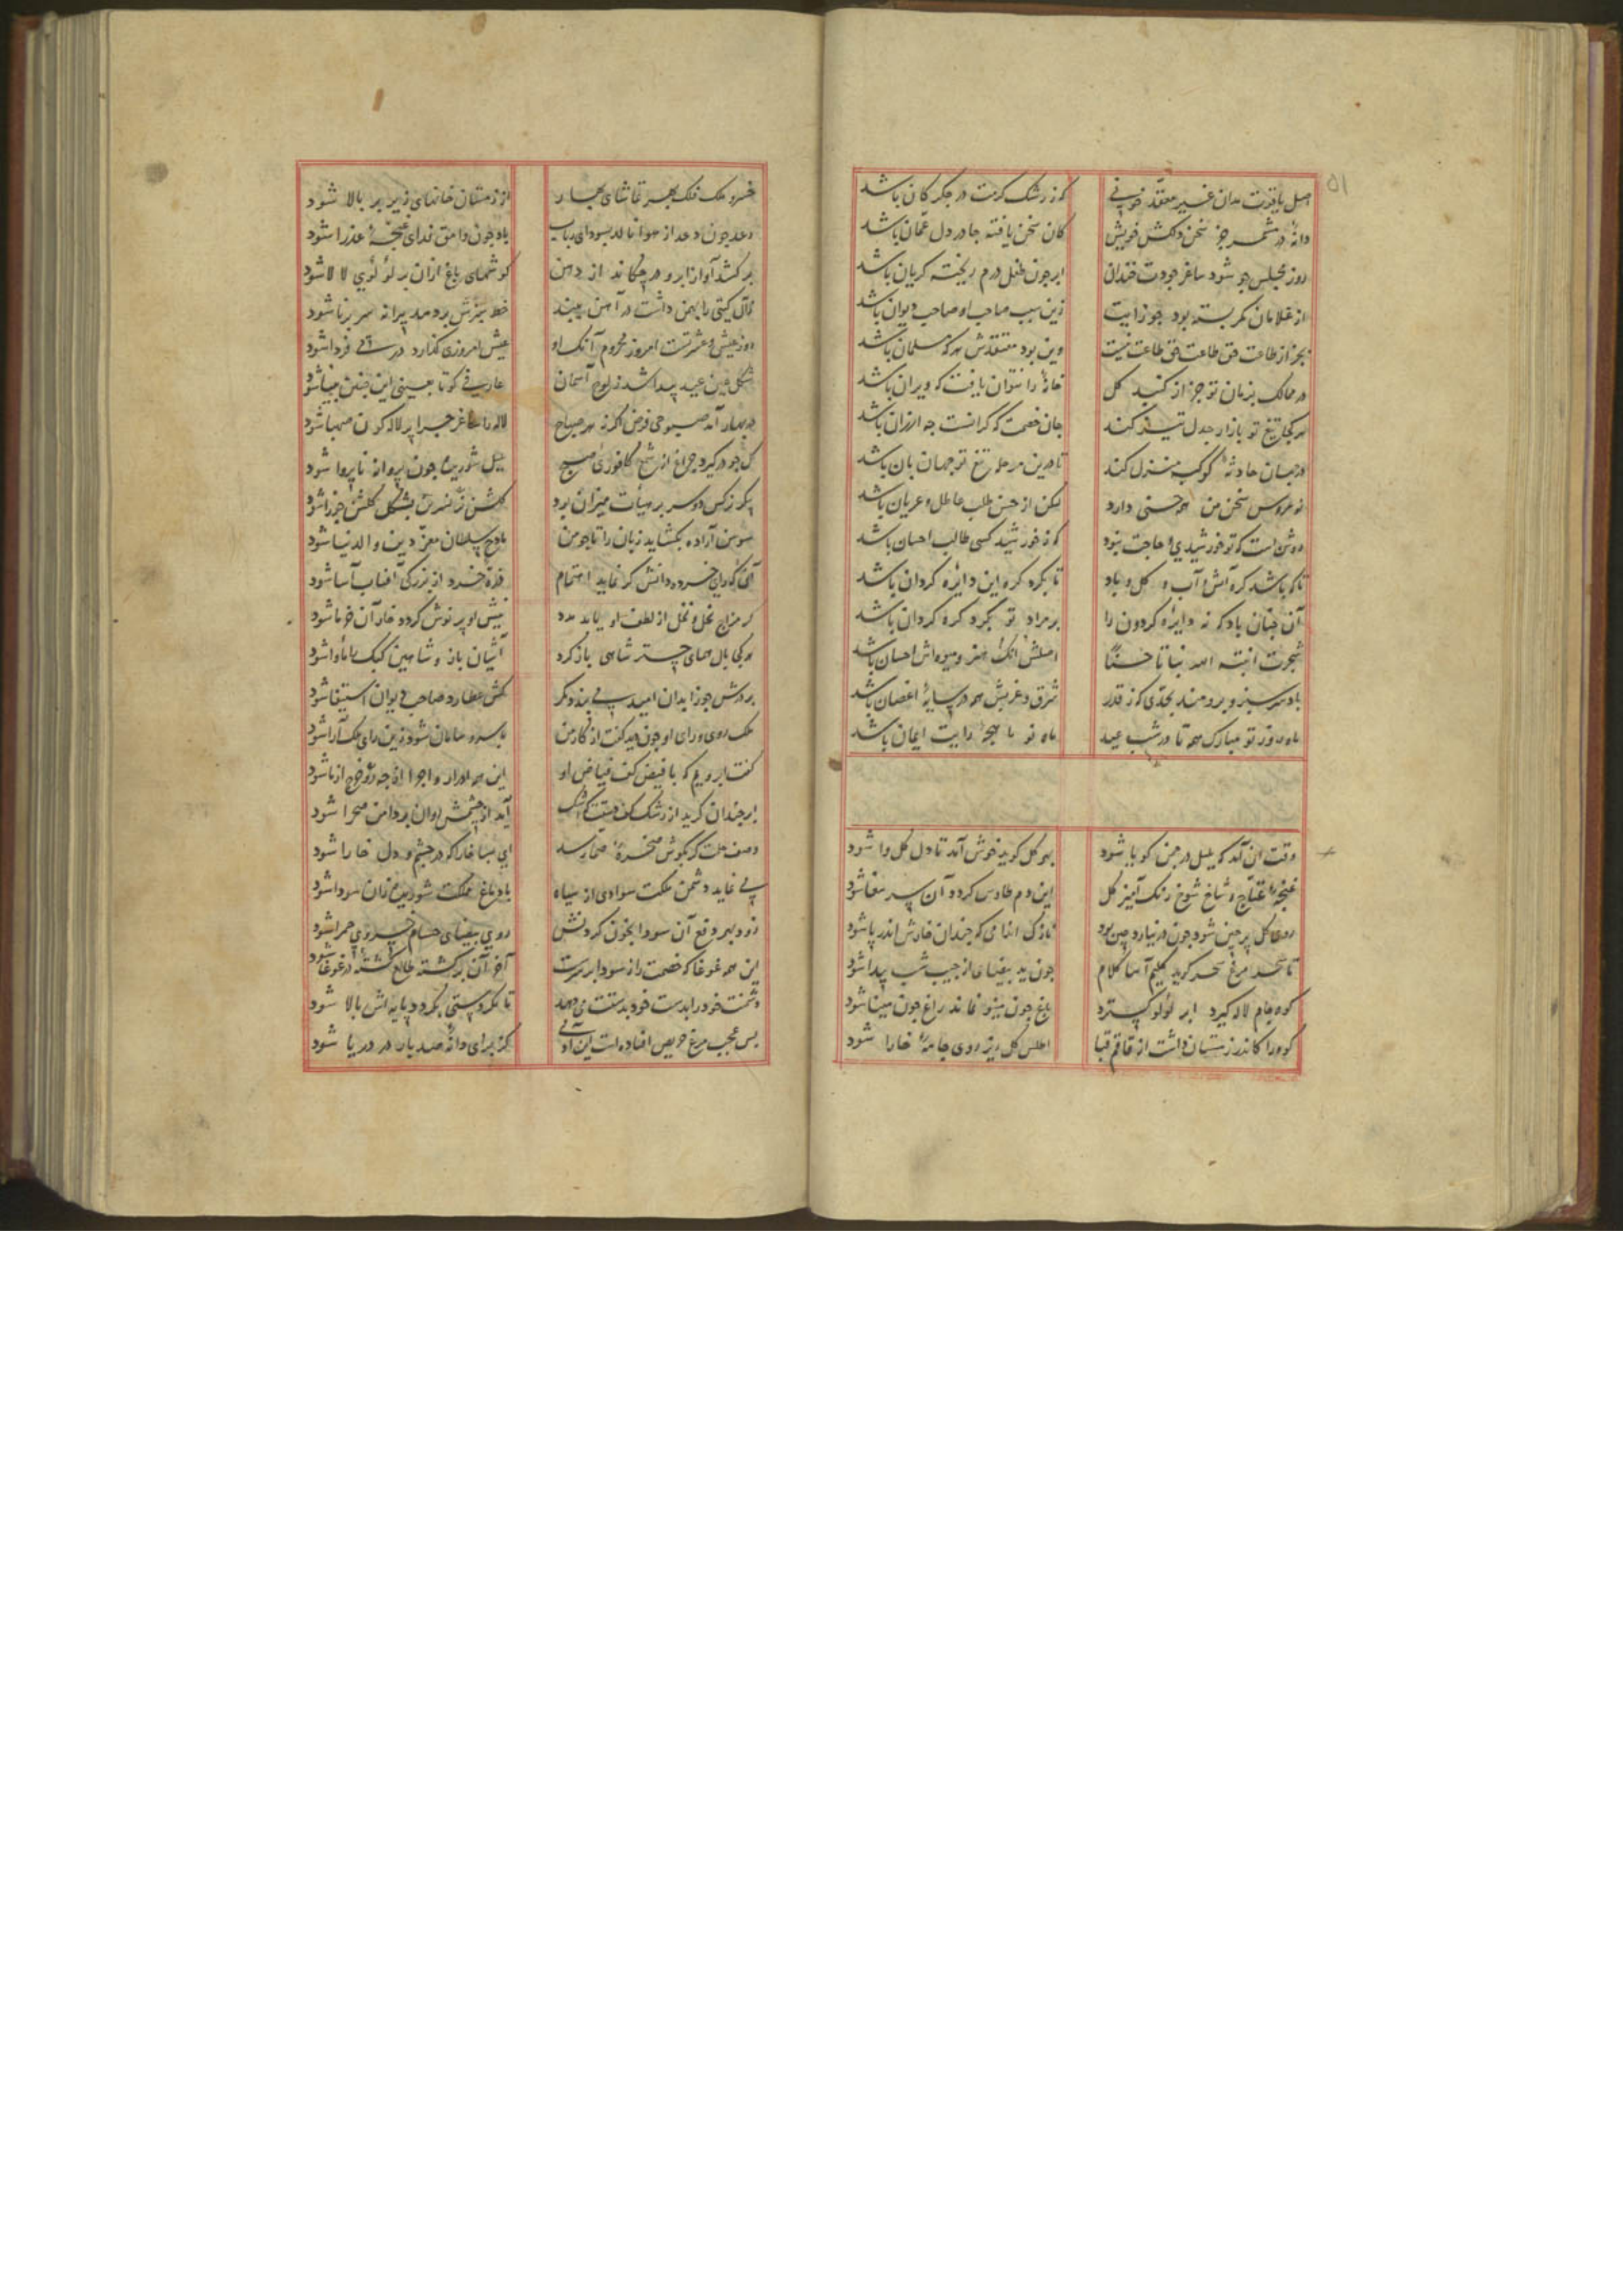 ۵۱
کز رشک کرمت در جگر کان باشد
کان سخن یافته جا در دل عمان باشد
روز مجلس چو شود ساغر جودت خندان ابر چون طفل درم ریخته کریان باشد
از غلامان کمر بسته بود جوزایت زین سبب صاحب او صاحب دیوان باشد
بجز از طاعت حق طاعت نیست وین بود معتقدش هر که مسلمان باشد
در ممالک بزمان تو جز از کنبد کل خانهٔ را نتوان یافت که ویران باشد
هر کجا تیغ تو بازار جدل تیز کند جان خصمت که کرانست چه ارزان باشد
در جهان حادثهٔ کوکب منزل کند تا درین مرحله تیغ تو جهان بان باشد
نو عروس سخن من همه حسنی دارد لیکن از حسن طلب عاطل و عریان باشد
روشن است که تو خورشیدی و حاجت نبود که ز خورشید کسی طالب احسان باشد
تا که باشد کره آتش و آب و کل و باد تا بکرد کره این دایره کردان باشد
آن چنان باد که نه دایره کردون را بر مراد تو بکرد کره کردان باشد
شجرت انبته الله نباتا حسنا اصلش آنک هنر و میوه‌اش احسان باشد
باد سرسبز و برومند بحدی کز قدر شرق و غربش همه در سایهٔ اغصان باشد
ماه روز تو مبارک همه تا در شب عید ماه نو با مهجهٔ رایت ایمان باشد
وقت آن آمد که بلبل در چمن کویا شود بهر کل کوید خوش آمد تا دل کل وا شود
غنچه و شاخ شوخ رنک آمیز کل این دم طاوس کردد آن سر شود
روی کل پر چین شود چون در نیارد چین بود نازک اندامی که چندان خارش اندر پا شود
تا سحر مرغ سحر کوید کلیم آسا کلام چون ید بیضای از جیب شب پیدا شود
کوه جام لاله کیرد ابر لؤلؤ کسترد باغ چون مینو نماند راغ چون مینا شود
کوه را کاندر زمستان داشت از قاقم قبا اطلس کل ریز روی جامهٔ خارا شود
خسرو ملک فلک بهر تماشای بهار از زمستان خانهای زیر بر بالا شود
رعد چون دعد از هوا نالد بسودای رباب باد چون وامق فدای غنچهٔ عذرا شود
بر کشد آواز ابر و در چکاند از دهن کوشهای باغ ازان پر لؤلؤی لالا شود
خط سبزش بردمد پیرانه سر برنا شود
روز عیش و عشرتست امروز محروم آنک او عیش امروزی کذارد در پی فردا شود
شکل عین عید پیدا شد ز لوح آسمان عارفی کو تا بعینی این چنین بینا شود
در بهار آمد صبوحی فرض اکر نه هر صباح لاله را ساغر چرا پر لاله کون صهبا شود
کل چو در کیرد چراغ از شمع کافوری صبح بلبل شوریده چون پروانه ناپروا شود
پیکر نرکس دو سر بر هیأت میزان بود کلشن از نسرین بشکل کلشن جوزا شود
سوسن آزاده بکشاید زبان را تا چو من مادح سلطان معز دین و الدنیا شود
آنک رای خرده دانش کر نماید اهتمام ذره خرد از بزرکی آفتاب آسا شود
در مزاج نحل و نخل از لطف او یابد مدد نیش او پر نوش کردد خار آن خرما شود
هر کجا بال همای چتر شاهی باز کرد آشیان باز و شاهین کبک را مأوا شود
بر درش جوزا بدان امید می‌بندد کمر کش عطارد صاحب دیوان استیفا شود
ملک روی و رای او چون دید کفت از کار من با سر و سامان شود زین رای ملک آرا شود
کفت ابر و یم که با فیض کف فیاض او این همه ادرار و اجرا از چه رو خرج از ما شود
ابر چندان کرید از رشک کف آید از چشمش روان بر دامن صحرا شود
وصف حلمت کر بکوش صخرهٔ صما رسد ای بسا خارا که در چشم و دل خارا شود
پی نماید دشمن ملکت سوادی از سپاه یا دماغ مملکت شوریده زان سودا شود
زود بهر دفع آن سودا بخون کردنش روی بیضای حسام خسروی حمرا شود
این همه غوغا که خصمت را ز سودا بر سرست آخر آن برکشته طالع کشتهٔ غوغا شود
دشمنت خود را بدست خود بدستت می‌دهد تا بکرد پستی بکردد پایه‌اش بالا شود
بس عجب مرغ حریص افتاده است این آدمی کز برای دانهٔ صد بار در دریا شود